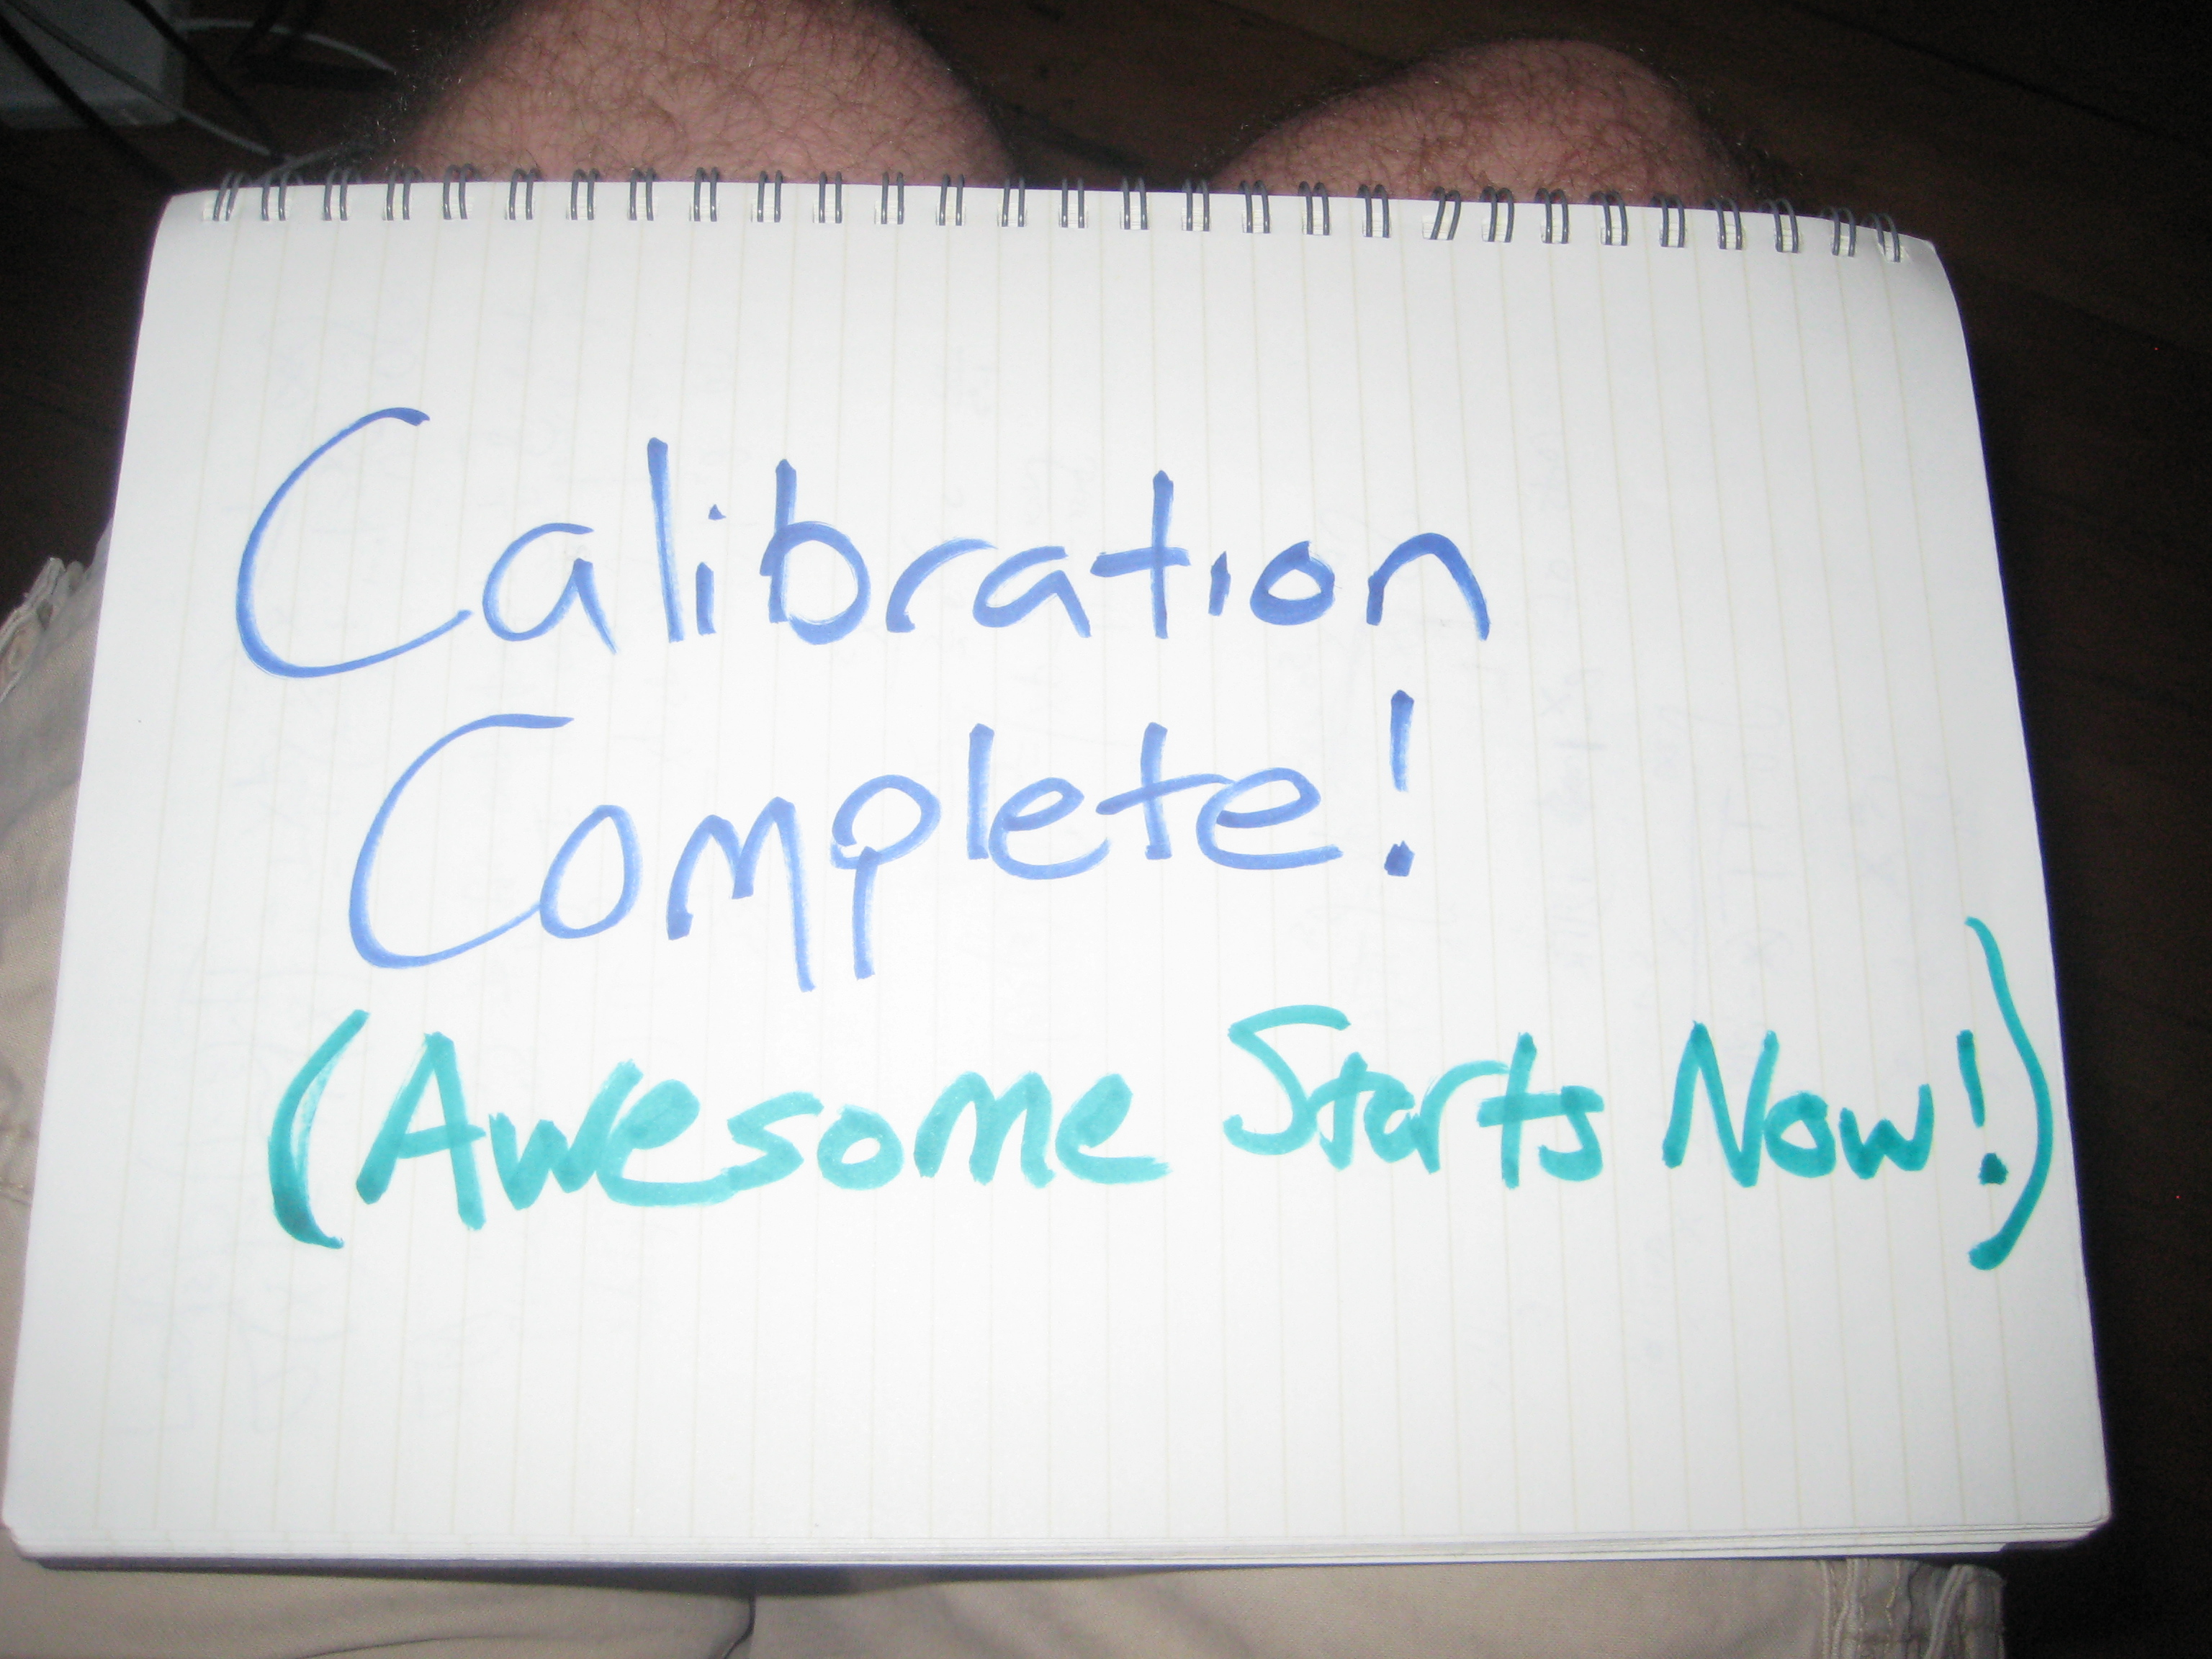 Calibration
Complete!
(Awesome Starts Now!)